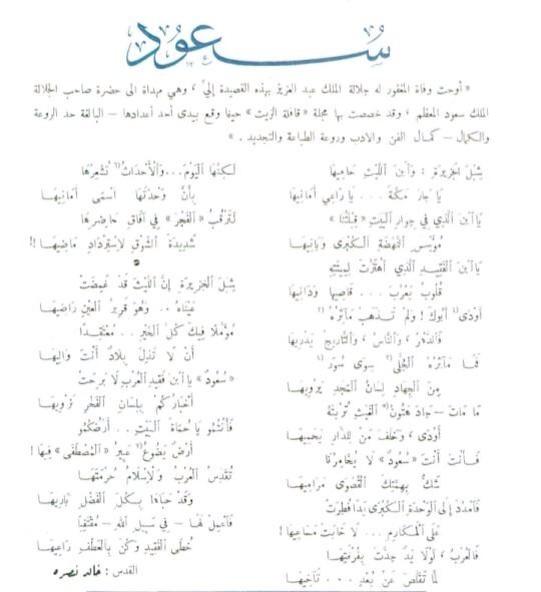 سعود
« أوحت وفاة المغفور له جلالة الملك عبد العزيز بهذه القصيدة إليّ ، وهي مهداة الى حضرة صاحب الجلالة
الملك سعود المعظم ، وقد خصصت بها مجلة « قافلة الزيت » حينما وقع بيدي أحد أعدادها – البالغة حد الروعة
والكمال – كمال الفن والادب وروعة الطباعة والتجديد . »
شبل الجزيرة : وابن الليث حاميها
يا جار مكة . . . يا راعي أمانيها
يا ابن الذي في جوار البيت « قبلتنا »
مؤسس النهضة الكبرى وبانيها
يا ابن الفقيد الذي اهتزت لميتته
قلوب يعرب . . . قاصيها ودانيها
أودى أبوك ! ولم تذهب مآثره
فالدهر ، والناس ، والتاريخ يدريها
فما مآثره الجلى سوى سور
من الجهاد لسان المجد يرويها
ما مات – جاد هتون الغيث تربته
أودى ، وخلف من للدار يحميها
فأنت أنت « سعود » لا يخامرنا
شك بهمتك القصوى مراميها
فامدد إلى الوحدة الكبرى يدا فطرت
على المكارم . . . لا خابت مساعيها !
فالعرب ، لولا يد جذت بفرقتها
لما تقلص عن بعد . . . تآخيها
لكنها اليوم . . . والأحداث تشعرها
بأن وحدتها أسمى أمانيها
لترقب « الفجر » في آفاق حاضرها
شديدة الشوق لاسترداد ماضيها !!
شبل الجزيرة إن الليث قد غمضت
عيناه . . وهو قرير العين راضيها
مؤملا فيك كل الخير . . معتقدا
أن لا تذل بلاد أنت واليها
« سعود » يا ابن فقيد العرب لا برحت
أخباركم بلسان الفخر نرويها
فأنتمو يا حماة البيت . . أرضكمو
أرض يضوع عبير « المصطفى » فيها !
تقدس العرب والإسلام حرمتها
وقد حباها بكل الفضل باريها
فاعمل لها – في سبيل الله – مقتفيا
خطى الفقيد وكن بالعطف راعيها
القدس : خالد نصره